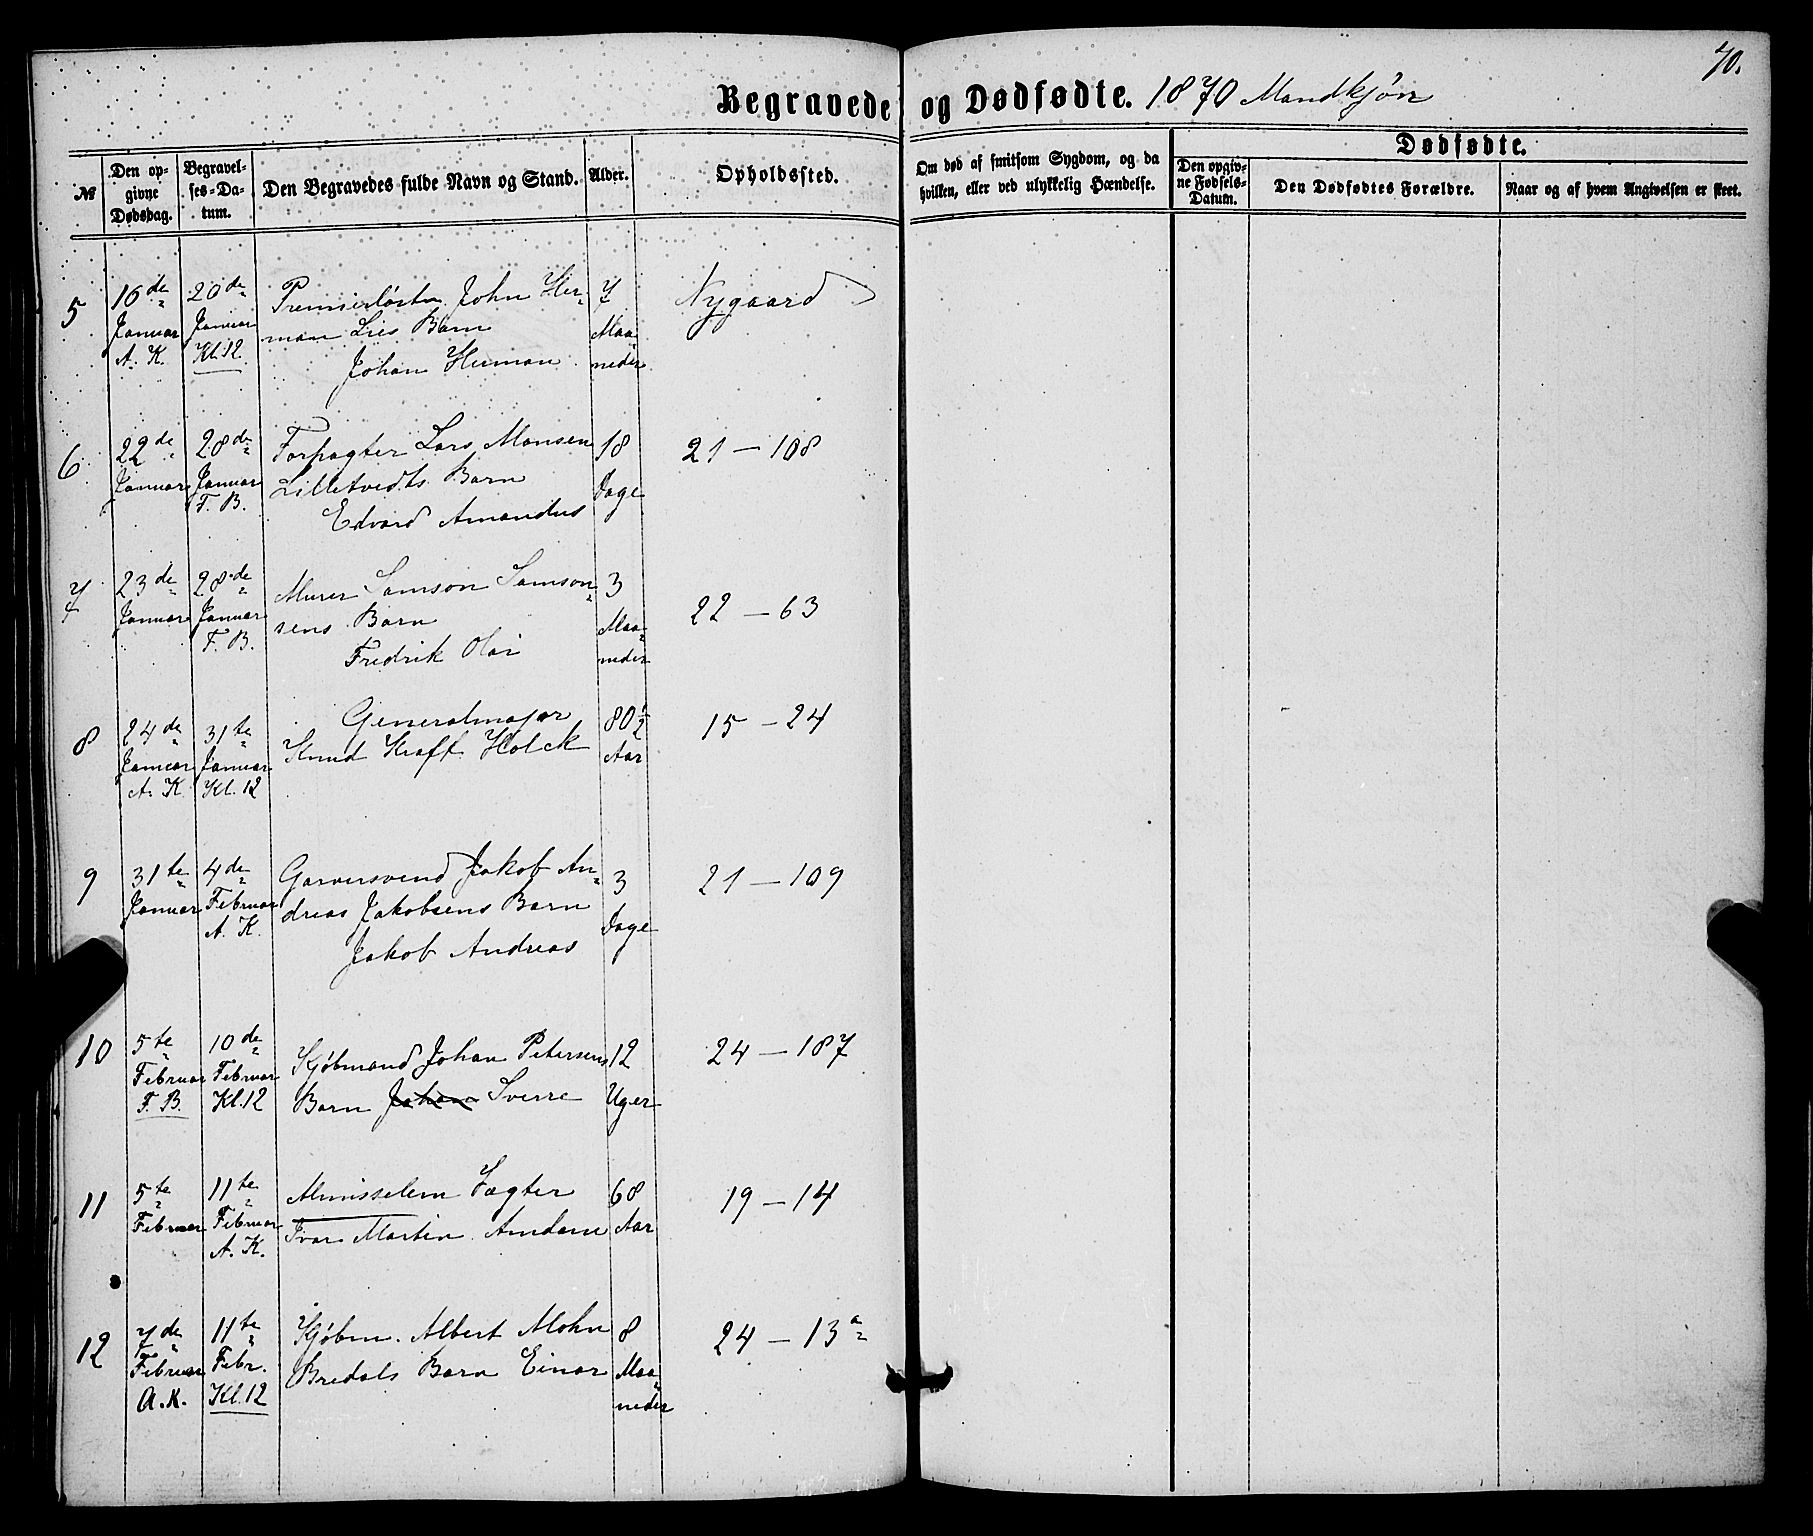 70.
Begravede og Dødfødte. 1870 Mandkjøn
№
Den opgivne Dødsdag.
Begravelses-Datum.
Den Begravedes fulde Navn og Stand.
Alder.
Opholdssted.
Om død af smitsom Sygdom, og da hvilken, eller ved ulykkelig Hændelse.
Dødfødte.
Den opgivne Fødsels-Datum.
Den Dødfødtes Forældre.
Naar og af hvem Angivelsen er skeet.
5
16de Januar A. K.
20de Januar Kl. 12
John Her-
man Lies Barn
Johan Herman
7 Maaneder
Nygaard
6
22de Januar
28de Januar F. B.
Forpagter Lars Monsen
Lilletvedts Barn
Edvard Amandus
18 Dage
21 — 108
7
23de Januar
28de Januar F. B.
Murer Samson Samson-
sens Barn
Fredrik Olai
3 Maaneder
22 — 63
8
24de Januar A. K.
31te Januar Kl. 12
Generalmajor
Knud Kraft Holck
80½ Aar
15 — 24
9
31te Januar
4de Februar A. K.
Garversvend Jakob An-
dreas Jakobsens Barn
Jakob Andreas
3 Dage
21 — 109
10
5te Februar F. B.
10de Februar Kl. 12
Kjøbmand Johan Petersens
Barn Johan Sverre
12 Uger
24 — 187
11
5te Februar
11te Februar A. K.
Almisselem Vægter
Ivar Martin Amdam
68 Aar
19 — 14
12
7de Februar A. K.
11te Febr. Kl. 12
Kjøbm. Albert Mohn
Bredals Barn Einar
8 Maaneder
24 — 13a